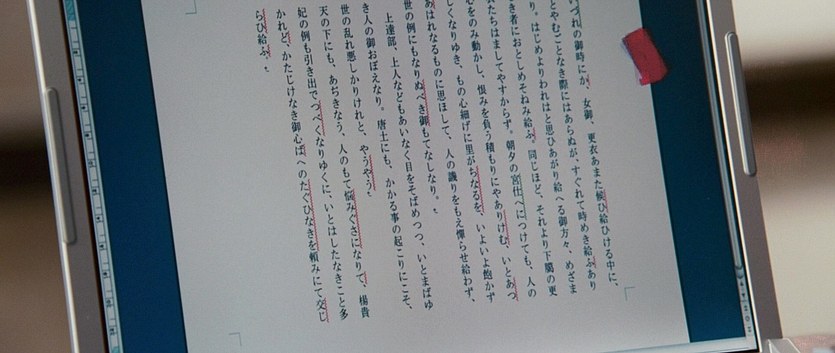 づれの御時にか、女御、更衣あまた候ひ給ひける中に、
とやむごとなき際にはあらぬが、すぐれて時めき給ふあり
り。はじめよりわれはと思ひあがり給へる御方々、めざま
き者におとしめそねみ給ふ。同じほど、それより下﨟の更
衣たちはましてやすからず。朝夕の宮仕へにつけても、人の
心をのみ動かし、恨みを負ふ積もりにやありけむ、いとあつ
しくなりゆき、もの心細げに里がちなるを、いよいよ飽かず
あはれなるものに思ほして、人の譏りをもえ憚らせ給わず、
世の例にもなりぬべき御もてなしなり。
上達部、上人などもあいなく目をそばめつつ、いとまばゆ
き人の御おぼえなり。唐土にも、かかる事の起こりにこそ、
世の乱れ悪しかりけれと、やうやう、
天の下にも、あぢきなう、人のもて悩みぐさになりて、楊貴
妃の例も引き出でつべくなりゆくに、いとはしたなきこと多
かれど、かたじけなき御心ばへのたぐひなきを頼みにて交じ
らひ給ふ。